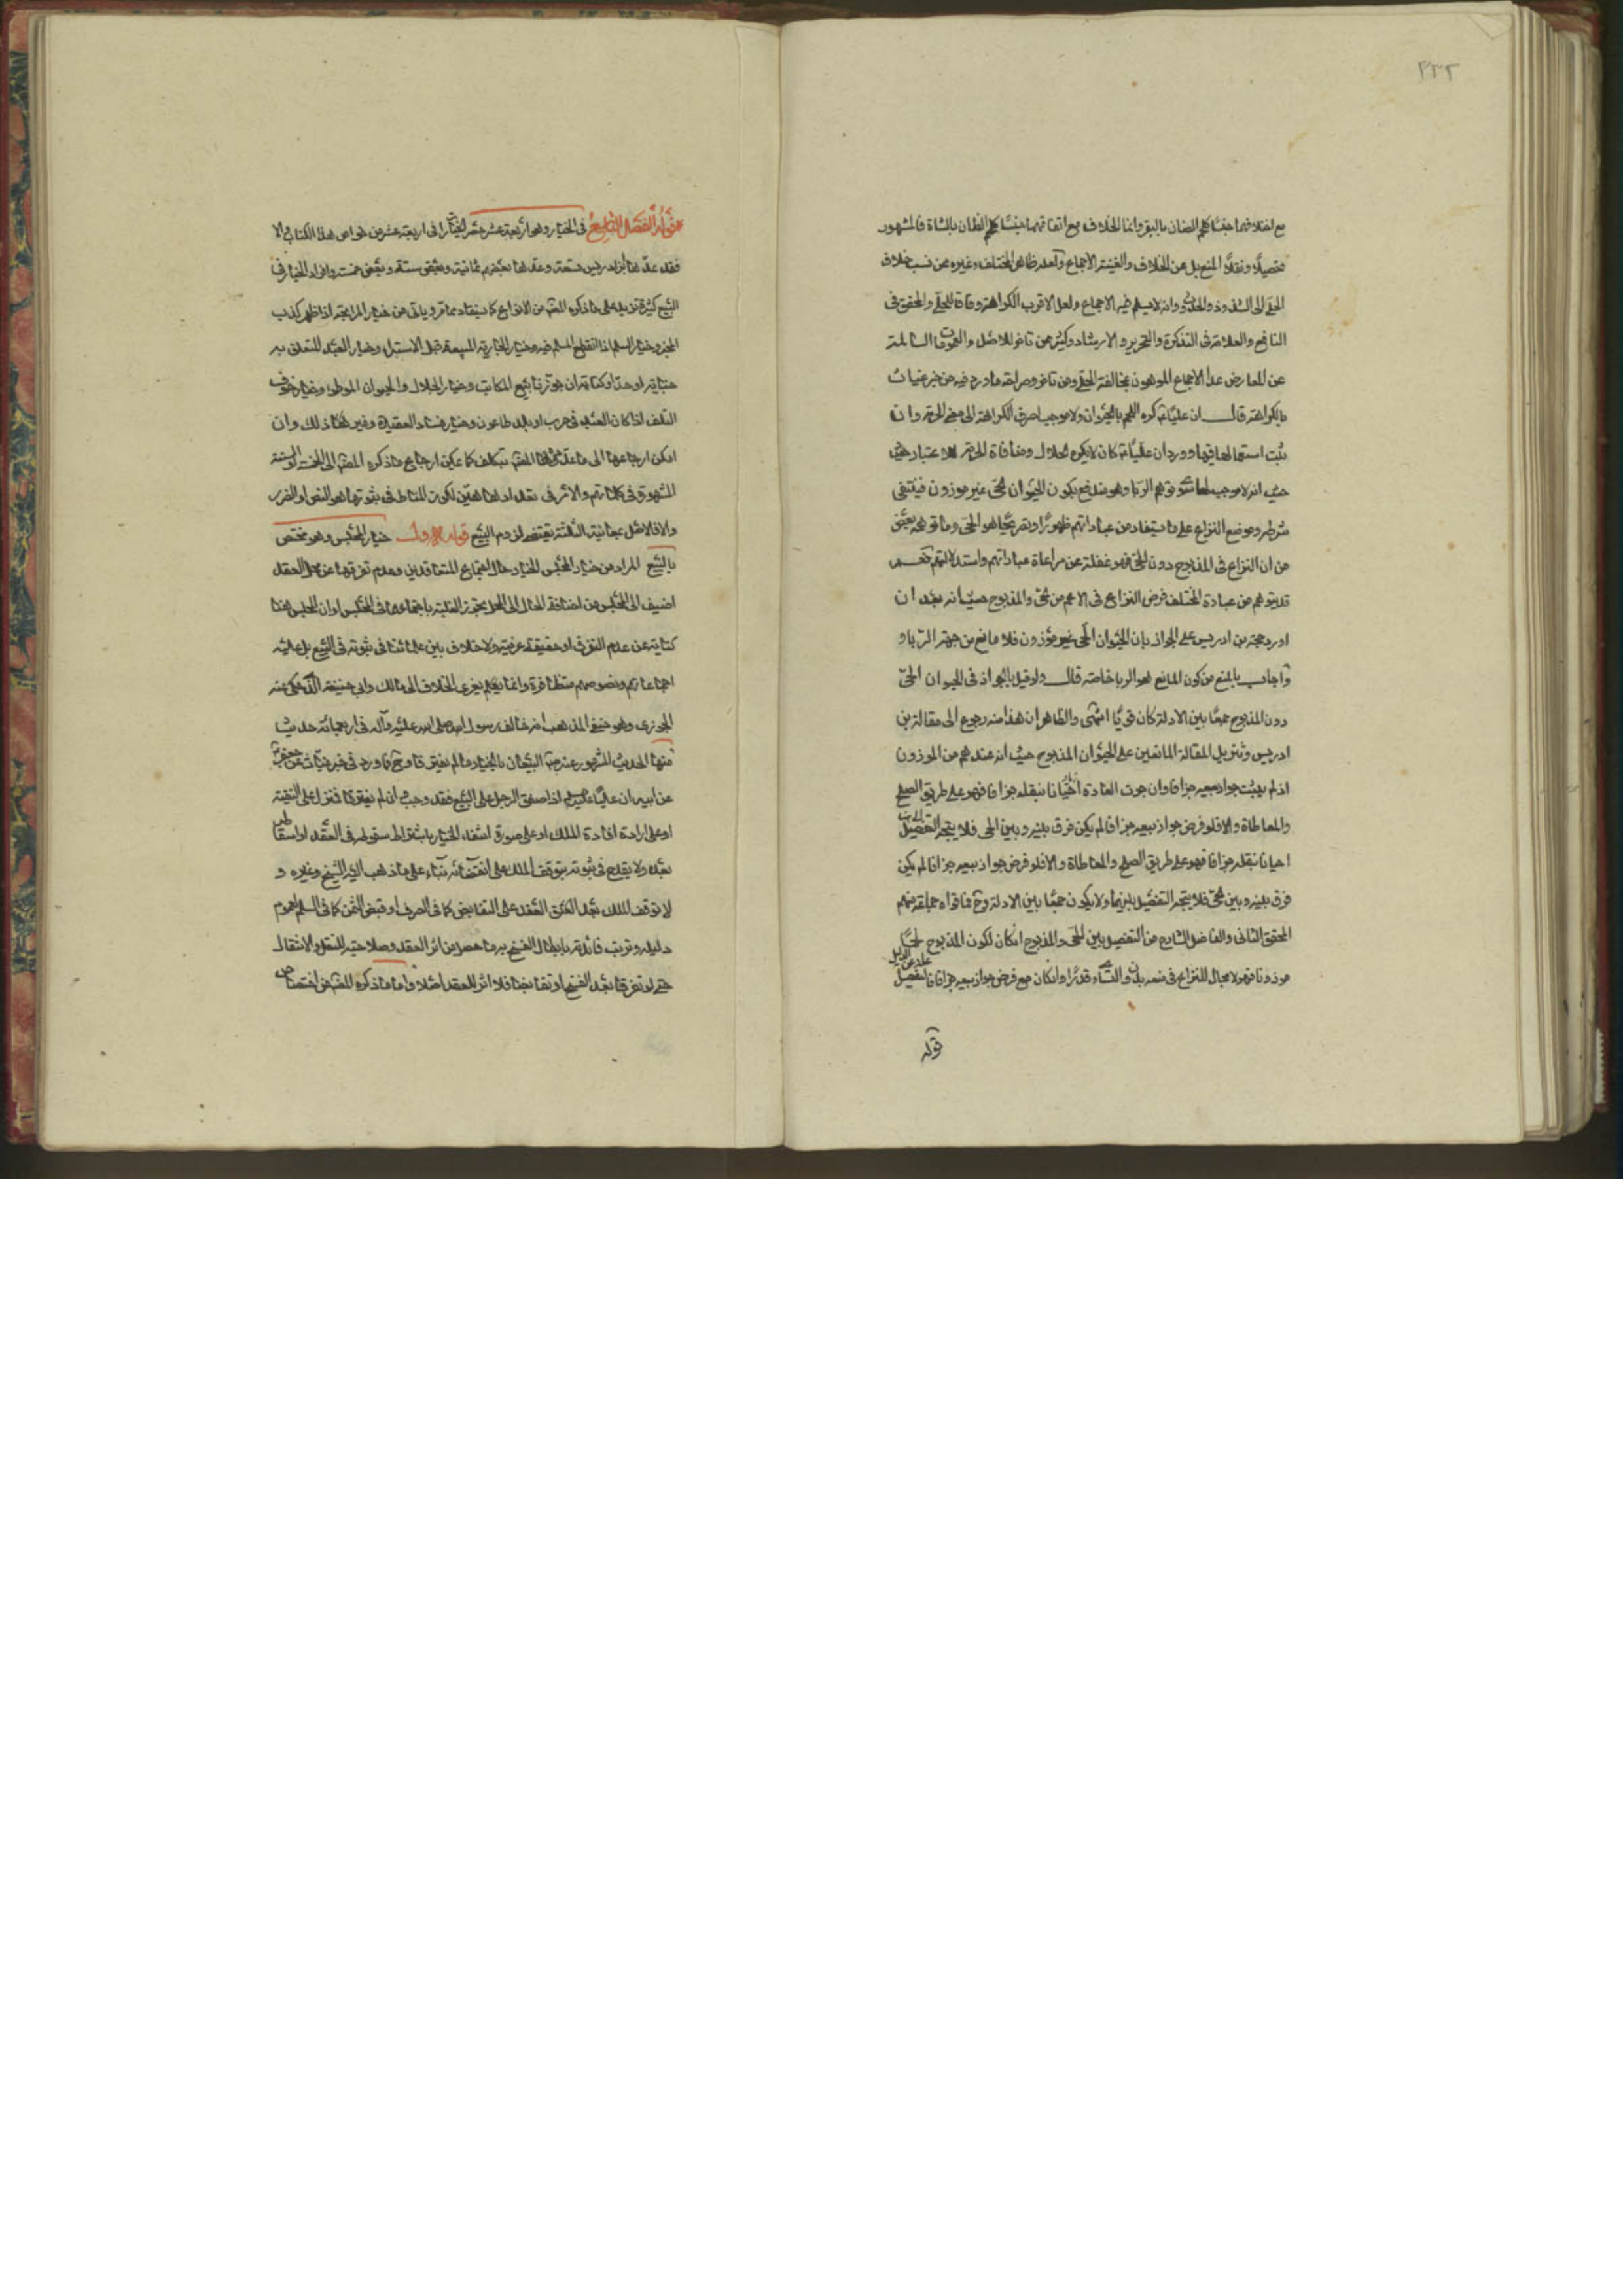 ٢٣٢
مع اختلافهما جنسًا كلحم الضان بالبقر وانما الخلاف مع اتفاقهما جنسًا كلحم الضان بالشاة فالمشهور
تحصيلا ونقلا المنع بل عن الخلاف والغنية الاجماع ولعله ظاهر المختلف وغيره ممن نسب خلاف
الحلي الى الشذوذ وانه لا يسلم فيه الاجماع ولعل الاقرب الكراهة وفاقا للحلي والمحقق في
النافع والعلامة في التذكرة والتحرير والارشاد وكثير ممن تاخر للاصل والعمومات السالمة
عن المعارض عدا الاجماع الموهون بمخالفة الحلي ومن تاخر ومرافقه ما ورد فيه من خبر غياث
بالكراهة قال ان عليا كره اللحم بالحيوان ولا موجب لصرف الكراهة الى معنى الحرمة وان
ثبت استعمالها فيها وورود ان عليا كان لا يكره الحلال ومنافاة الحرمة للاعتبار
حيث انه لا موجب لها سوى توهم الربا وهو مندفع بكون الحيوان الحي غير موزون فينتفي
شرطه وموضع النزاع على ما يستفاد من عباداتهم ظهورًا وتصريحًا هو الحي وما توهمه بعض
من ان النزاع في المذبوح دون الحي فهو غفلة عن مراعاة عباداتهم واستدلالاتهم نعم
قد يتوهم من عبارة المختلف فرض النزاع في الاعم من الحي والمذبوح حيث انه بعد ان
اورد حجة بن ادريس على الجواز بان الحيوان الحي غير موزون فلا مانع من جهة الربا و
اجاب بالمنع من كون المانع هو الربا خاصة قال ولو قيل بالجواز في الحيوان الحي
دون المذبوح جمعًا بين الادلة كان قويًا انتهى والظاهر ان هذا منه رجوع الى مقالة بن
ادريس وتنزيل المقالة المانعين على الحيوان المذبوح حيث انه عندهم من الموزون
اذ لم يثبت جواز بيعه جزافا وان جرت العادة احيانا بنقله جزافا فهو على طريق الصلح
والمعاطاة والا فلو فرض جواز بيعه جزافا لم يكن فرق بينه وبين الحي فلا يتجه التفصيل
احيانا بنقله جزافا فهو على طريق الصلح والمعاطاة والا فلو فرض جواز بيعه جزافا لم يكن
فرق بينه وبين الحي فلا يتجه التفصيل بينهما ولا يكون جمعًا بين الادلة وح فما قواه جماعة منهم
المحقق الثاني والفاضل الشارح من التفصيل بين الحي والمذبوح ان كان لكون المذبوح لحمًا
موزونا فهو لا مجال للنزاع في منعه وان كان مع فرض جواز بيعه جزافا فالتفصيل
قوله
قوله الفصل التاسع في الخيار وهو اربعة عشر حصر الخيار في اربعة عشر من خواص هذا الكتاب والا
فقد عدها ابن ادريس تسعة وعدها بعضهم ثمانية وبعض ستة وبعض خمسة وافراد الخيار في
البيع كثيرة تزيد على ما ذكره المصنف من الانواع كما يستفاد مما مر وياتي من خيار المرابحة اذا ظهر كذب
المخبر وخيار السلم اذا انقطع المسلم فيه وخيار الجارية المبيعة قبل الاستبراء وخيار العبد المتعلق به
جناية او حد او كتابة ان جوزنا بيع المكاتب وخيار الجلال والحيوان الموطوء وخيار خوف
التلف اذا كان العبد في حرب او بلد طاعون وخيار فساد العقيدة وغير ذلك وان
امكن ارجاعها الى ما عده المصنف بتكلف كما يمكن ارجاع ما ذكره المصنف الى الخمسة او الستة
المشهورة في كلماتهم والامر في تعدادها هين لكون المناط في ثبوتها هو النص او الضرر
والا فالاصل بمعانيه الثلثة يقتضي لزوم البيع قوله الاول خيار المجلس وهو مختص
بالبيع المراد من خيار المجلس الخيار حال اجتماع المتعاقدين وعدم تفرقهما عن محل العقد
اضيف الى المجلس من اضافة الحال الى المحل تجوز الغلبة باجتماعهما في المجلس او ان المجلس هنا
كناية عن عدم التفرق او حقيقة عرفية ولا خلاف بين علمائنا في ثبوته في البيع بل عليه
اجماعاتهم ونصوصهم متظافرة وانما يعلم يعزى الخلاف الى مالك وابي حنيفة الذي حكى عنه
الجوزي وهو حنفي المذهب انه خالف رسول الله صلى الله عليه وآله في اربعمائة حديث
منها الحديث المشهور عنه البيعان بالخيار ما لم يفترقا وح فما ورد في خبر غياث عن جعفر
عن ابيه ان عليا عليه السلام اذا صفق الرجل على البيع فقد وجب وان لم يفترقا فنزل على التقية
او على ارادة افادة الملك او على صورة اسقاط الخيار باشتراط سقوطه في العقد او اسقاطه
بعده ولا يقدح في ثبوته توقف الملك على انقضائه بناء على ما ذهب اليه الشيخ وغيره و
لا توقف الملك بعد العقد على التقابض كما في الصرف او قبض الثمن كما في السلم لعموم
دليله وترتب فائدته بابطال الفسخ به ما حصل من اثر العقد وصلاحيته للنقل والانتقال
حتى لو تفرقا بعد الفسخ او تقابضا فلا اثر للعقد اصلا واما ما ذكره المصنف من اختصاص